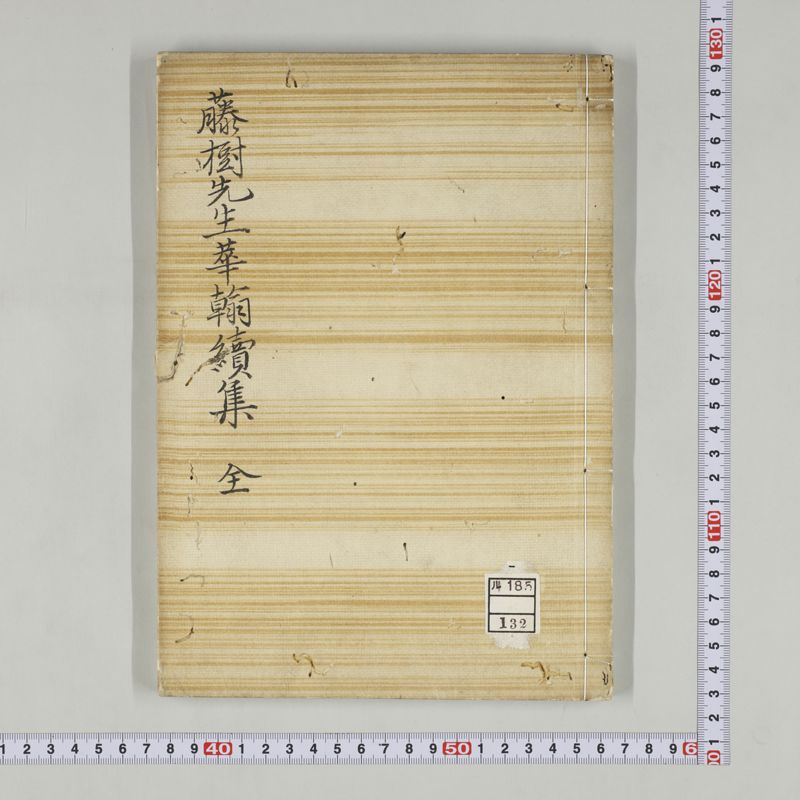 藤樹先生華翰續集 全
185
132
1 2 3 4 5 6 7 8 9 40 1 2 3 4 5 6 7 8 9 50 1 2 3 4 5 6 7 8 9 6
1 130 9 8 7 6 5 4 3 2 1 120 9 8 7 6 5 4 3 2 1 110 9 8 7 6 5 4 3 2 1 00